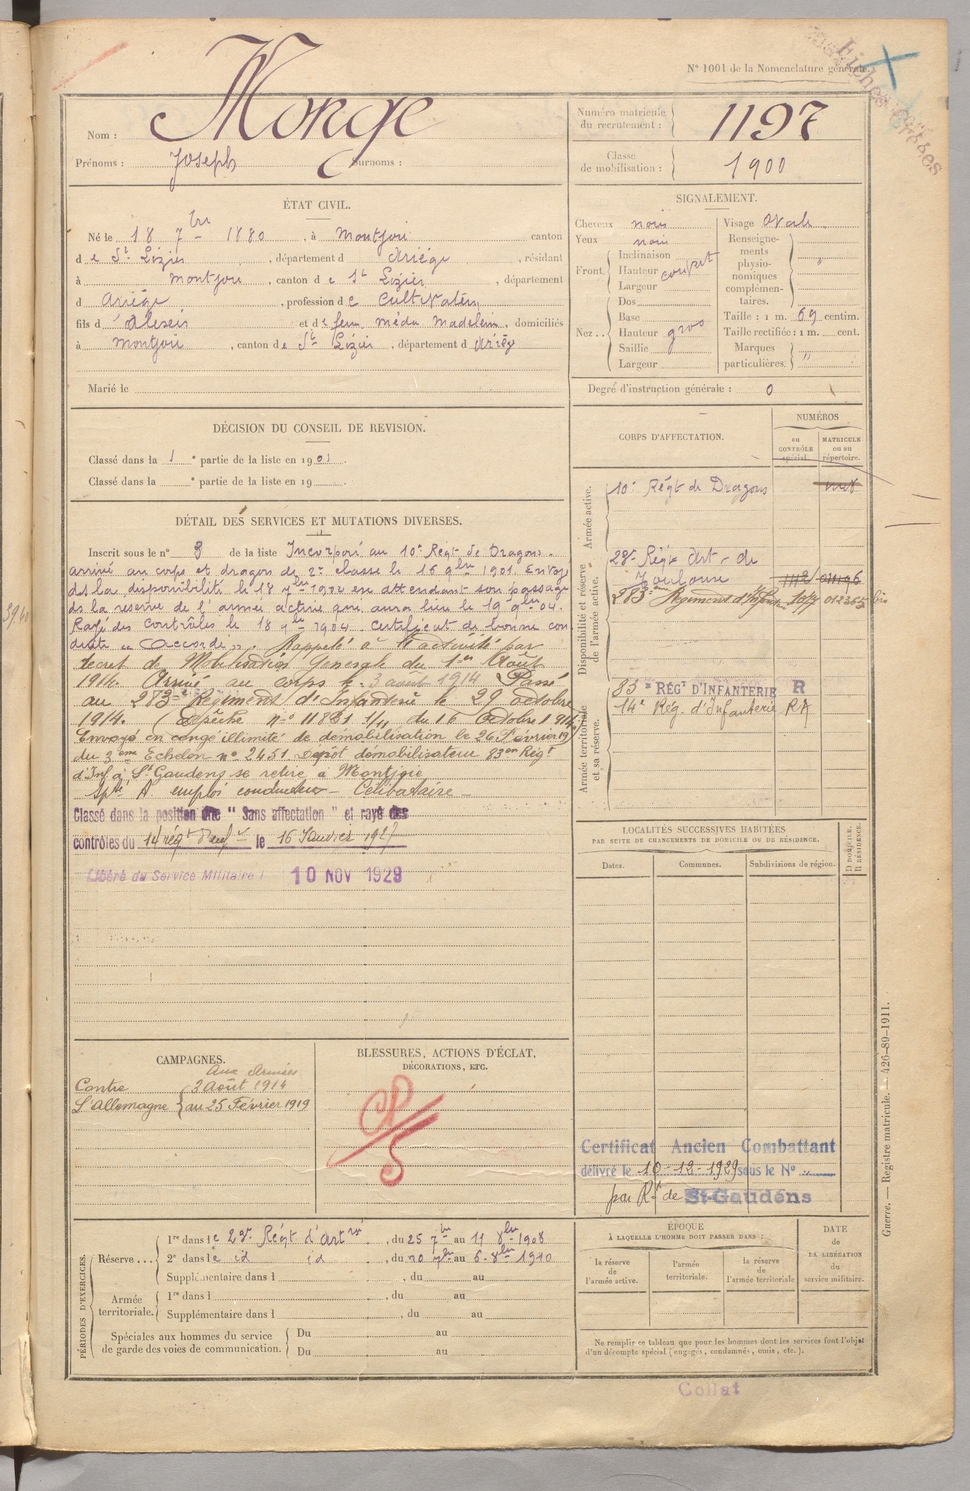 N° 1001 de la Nomenclature générale.
Nom : Monge
Prénoms : Joseph Surnoms :
Numéro matricule du recrutement : 1197
Classe de mobilisation : 1900
ÉTAT CIVIL.
Né le 18 7bre 1880, à Montjoie canton
de St Lizier, département d Ariège, résidant
à Montjoie, canton de St Lizier, département
d Ariège, profession de Cultivateur
fils d'Alexis et de feue Médu Madeleine, domiciliés
à Montjoie, canton de St Lizier, département d Ariège
Marié le
SIGNALEMENT.
Cheveux noirs
Yeux noirs
Front. Inclinaison
Hauteur couvert
Largeur
Nez... Dos
Base
Hauteur gros
Saillie
Largeur
Visage Ovale
Renseignements physionomiques complémentaires. "
Taille : 1 m. 69 centim.
Taille rectifiée : 1 m. cent.
Marques particulières. "
Degré d'instruction générale : 0
DÉCISION DU CONSEIL DE REVISION.
Classé dans la 1 e partie de la liste en 1901.
Classé dans la e partie de la liste en 19
DÉTAIL DES SERVICES ET MUTATIONS DIVERSES.
Inscrit sous le n° 8 de la liste Incorporé au 10e Régt de Dragons.
arrivé au corps et dragon de 2e classe le 16 9bre 1901. Envoyé
ds la disponibilité le 18 7bre 1904 en attendant son passage
ds la réserve de l'armée active qui aura lieu le 19 9bre 04.
Rayé des contrôles le 18 7bre 1904. Certificat de bonne con
duite "Accordé". Rappelé à l'activité par
decret de Mobilisation Générale du 1er Août
1914. Arrivé au corps le 3 août 1914 Passé
au 283e Régiment d'Infanterie le 29 octobre
1914. (Dépêche n° 11881 1/11 du 16 Octobre 1914)
Envoyé en congé illimité de démobilisation le 26 Février 19
du 3eme Echelon n° 2451 Dépôt démobilisateur 83eme Régt
d'Inf à St Gaudens se retire à Montjoie
Apte A emploi conducteur - Célibataire -
Classé dans la position dite "Sans affectation" et rayé des
contrôles du 14 régt d'Inf le 16 Janvier 1927
Libéré du Service Militaire 10 NOV 1929
CORPS D'AFFECTATION.
NUMÉROS
au CONTRÔLE spécial.
MATRICULE ou au répertoire.
Armée active.
10e Régt de Dragons
Disponibilité et réserve de l'armée active.
23e Régt Art. de
Toulouse
283eme Régiment d'Infrie
Armée territoriale et sa réserve.
83e RÉGT D'INFANTERIE R
14e Rég. d'Infanterie RA
LOCALITÉS SUCCESSIVES HABITÉES
PAR SUITE DE CHANGEMENTS DE DOMICILE OU DE RÉSIDENCE.
Dates. Communes. Subdivisions de région. D DOMICILE. R RÉSIDENCE.
CAMPAGNES.
Aux Armées
Contre 3 août 1914
L'Allemagne au 25 Février 1919
BLESSURES, ACTIONS D'ÉCLAT,
DÉCORATIONS, ETC.
Certificat Ancien Combattant
délivré le 10-12-1929 sous le N° "
par Rt de St-Gaudens
PÉRIODES D'EXERCICES.
Réserve... 1re dans le 23e Régt d'Artrie, du 25 7bre au 11 8bre 1908
2e dans le id id, du 20 7bre au 6 8bre 1910
Supplémentaire dans l , du au
Armée territoriale. 1re dans l , du au
Supplémentaire dans l , du au
Spéciales aux hommes du service de garde des voies de communication. Du au
Du au
ÉPOQUE
À LAQUELLE L'HOMME DOIT PASSER DANS :
la réserve de l'armée active.
l'armée territoriale.
la réserve de l'armée territoriale
DATE de LA LIBÉRATION du service militaire.
Ne remplir ce tableau que pour les hommes dont les services font l'objet
d'un décompte spécial (engagés, condamnés, omis, etc.).
Guerre. — Registre matricule. — 426-89-1911.
Collat